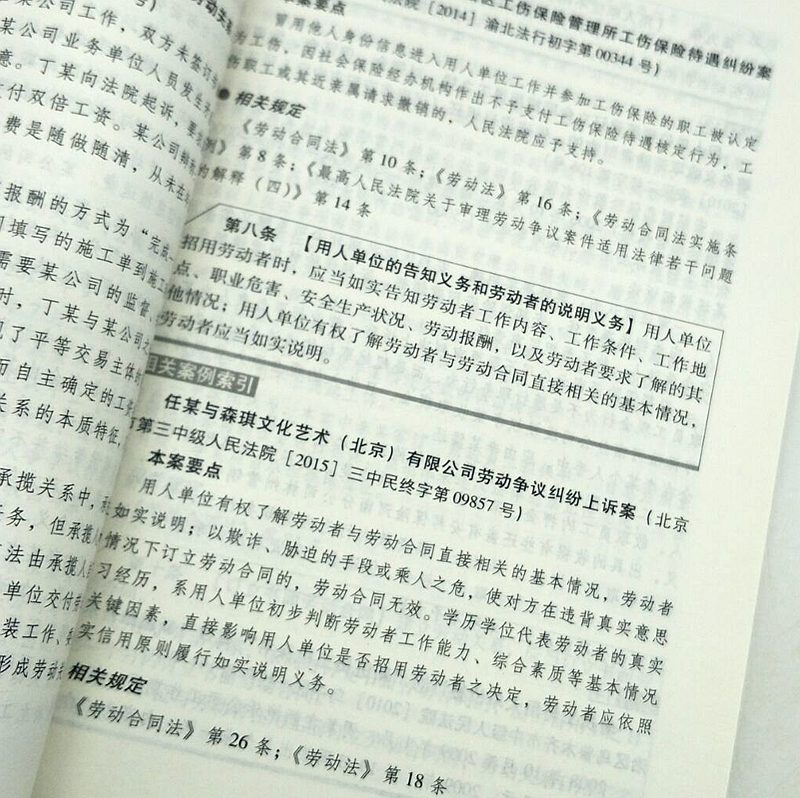 公司工作，双方未签订
某公司业务单位人员发生
意。丁某向法院起诉，要
付双倍工资。某公司
费是随做随清，从未在
报酬的方式为“完成
填写的施工单到施工
需要某公司的监督
时，丁某与某公司
了平等交易主体
而自主确定的工
关系的本质特征，
承揽关系中，
务，但承揽人
法由承揽人
单位交付
装工作、
形成劳动
区工伤保险管理所工伤保险待遇纠纷案
法院［2014］渝北法行初字第00344号）
本案要点
冒用他人身份信息进入用人单位工作并参加工伤保险的职工被认定
为工伤，因社会保险经办机构作出不予支付工伤保险待遇核定行为，工
伤职工或其近亲属请求撤销的，人民法院应予支持。
●相关规定
《劳动合同法》第10条；《劳动法》第16条；《劳动合同法实施条
例》第8条；《最高人民法院关于审理劳动争议案件适用法律若干问题
的解释（四）》第14条
第八条 【用人单位的告知义务和劳动者的说明义务】用人单位
招用劳动者时，应当如实告知劳动者工作内容、工作条件、工作地
点、职业危害、安全生产状况、劳动报酬，以及劳动者要求了解的其
他情况；用人单位有权了解劳动者与劳动合同直接相关的基本情况，
劳动者应当如实说明。
相关案例索引
任某与森琪文化艺术（北京）有限公司劳动争议纠纷上诉案（北京
市第三中级人民法院［2015］三中民终字第09857号）
本案要点
用人单位有权了解劳动者与劳动合同直接相关的基本情况，劳动者
如实说明；以欺诈、胁迫的手段或乘人之危，使对方在违背真实意思
情况下订立劳动合同的，劳动合同无效。学历学位代表劳动者的真实
习经历，系用人单位初步判断劳动者工作能力、综合素质等基本情况
关键因素，直接影响用人单位是否招用劳动者之决定，劳动者应依照
实信用原则履行如实说明义务。
相关规定
《劳动合同法》第26条；《劳动法》第18条